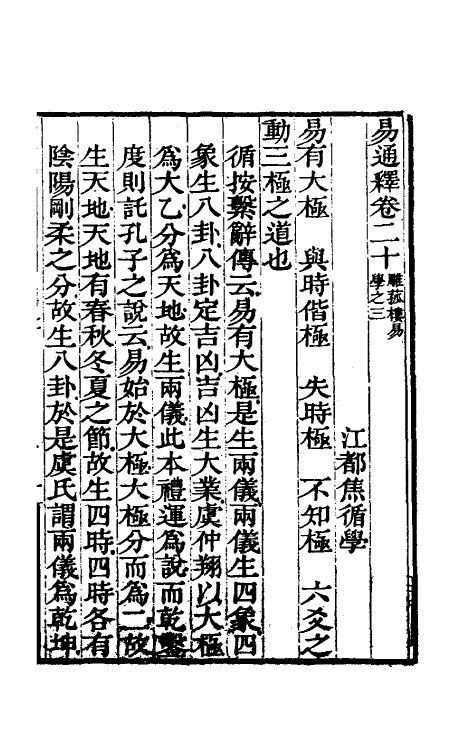 易通釋卷二十雕菰樓易學之三
江都焦循學
易有大極　與時偕極　失時極　不知極　六爻之
動三極之道也
循按繫辭傳云易有大極是生兩儀兩儀生四象四
象生八卦八卦定吉凶吉凶生大業虞仲翔以大極
爲大乙分爲天地故生兩儀此本禮運爲說而乾鑿
度則託孔子之說云易始於大極大極分而爲二故
生天地天地有春秋冬夏之節故生四時四時各有
陰陽剛柔之分故生八卦於是虞氏謂兩儀爲乾坤